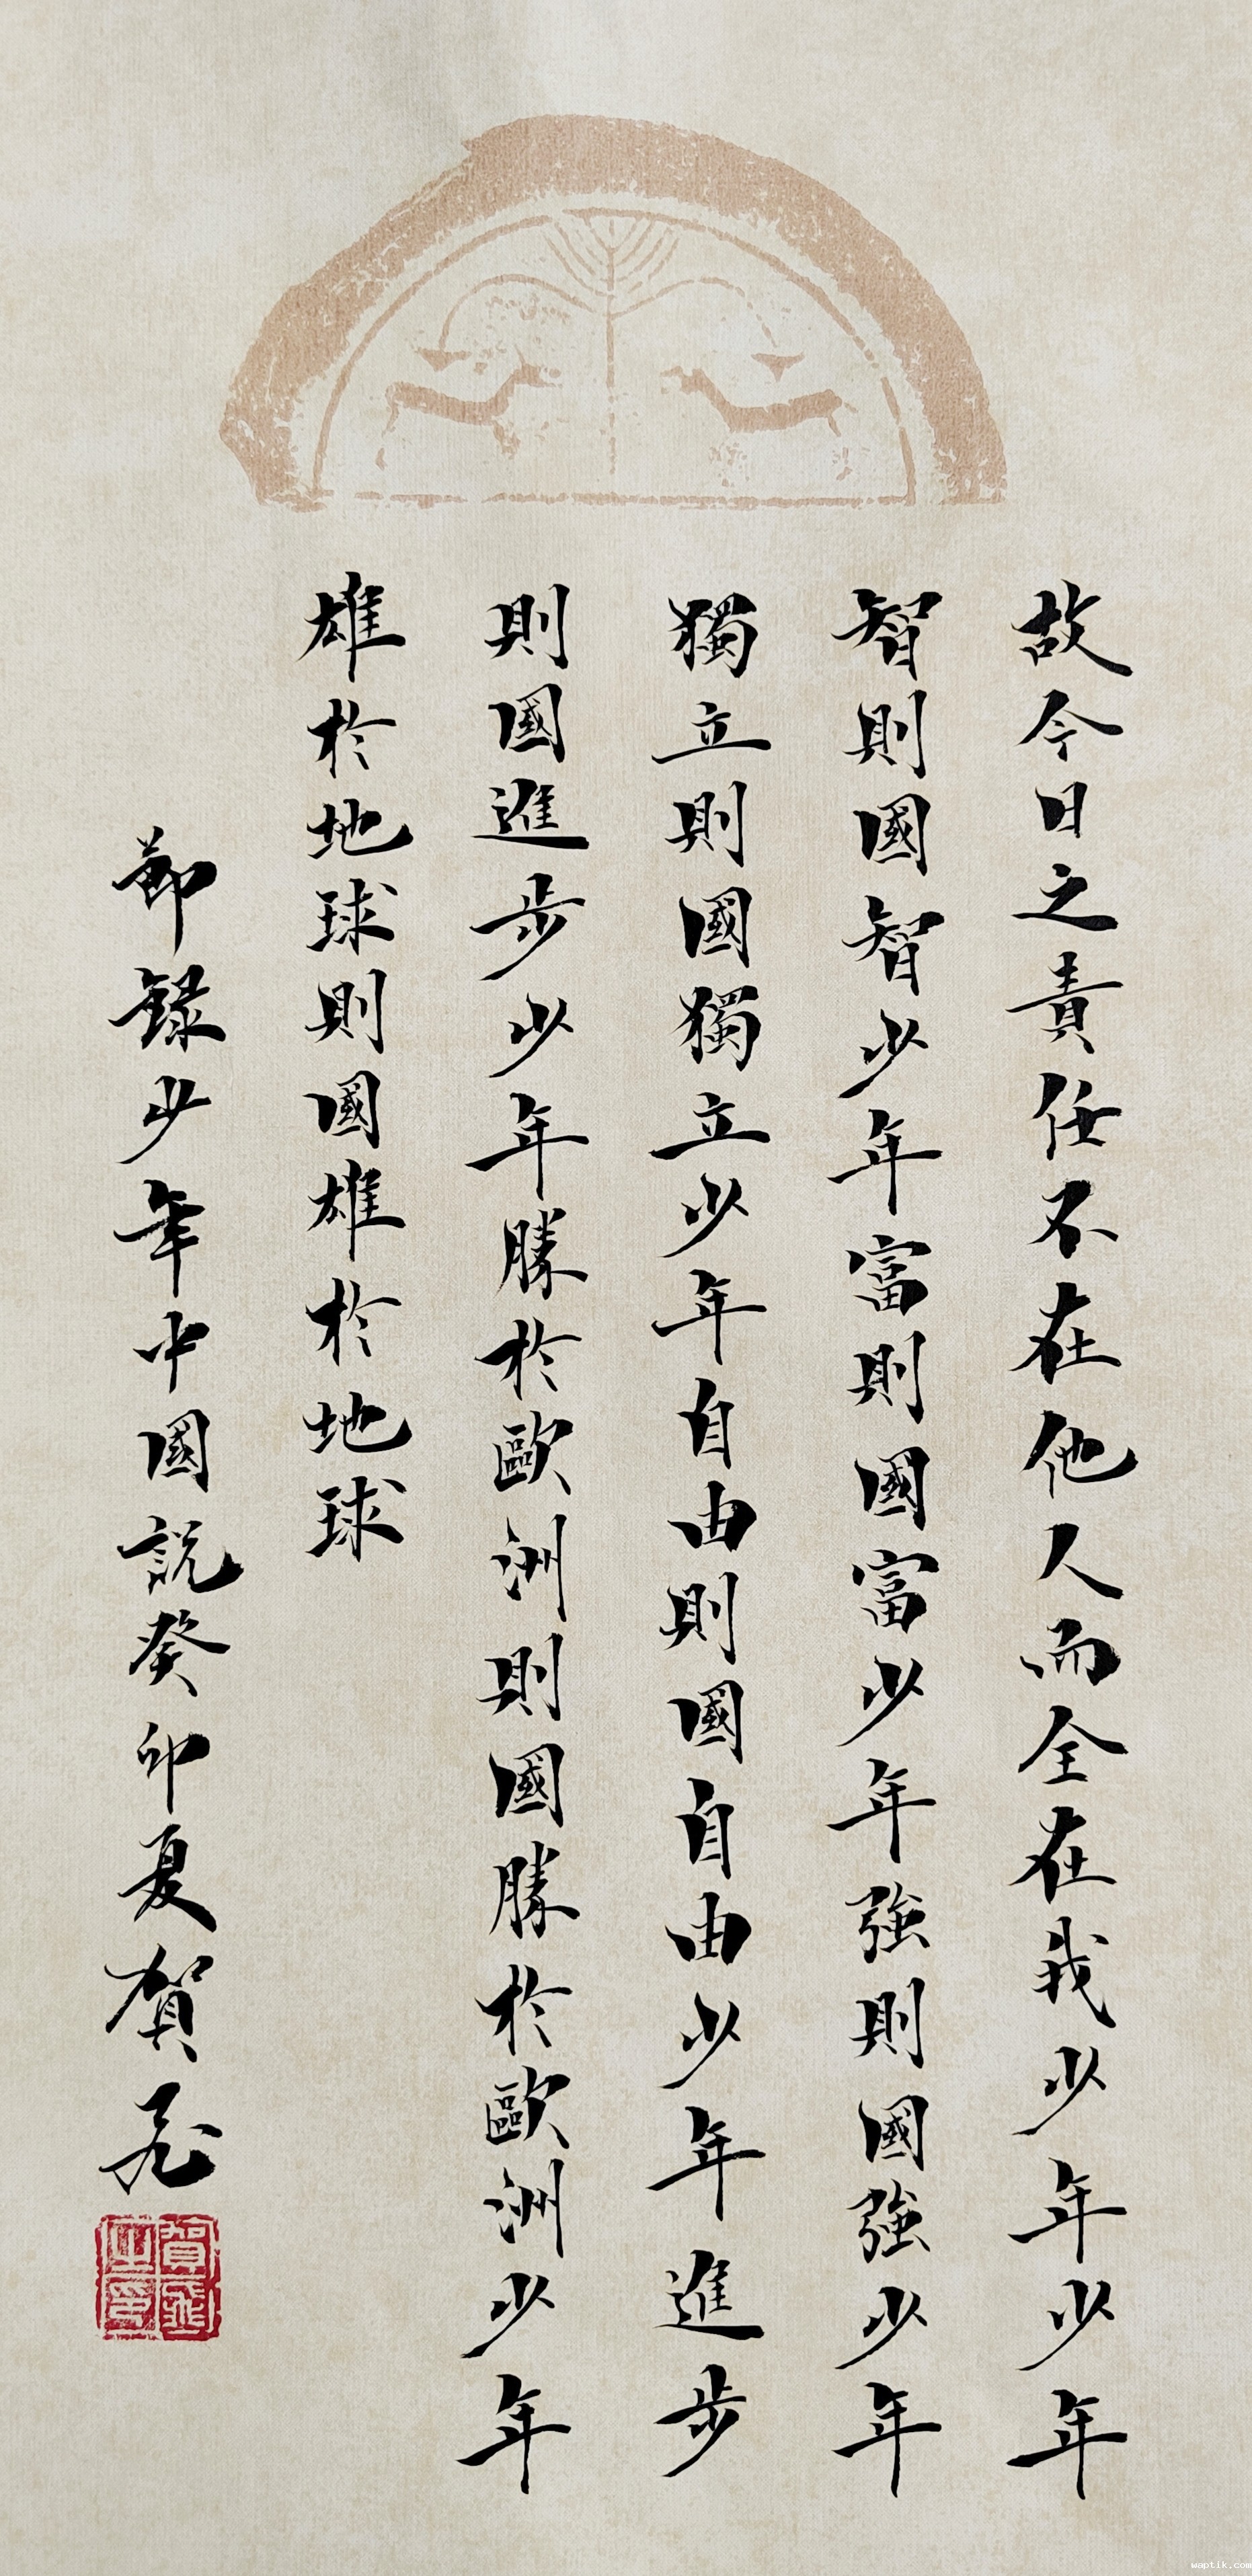 故今日之責任不在他人而全在我少年少年
智則國智少年富則國富少年強則國強少年
獨立則國獨立少年自由則國自由少年進步
則國進步少年勝於歐洲則國勝於歐洲少年
雄於地球則國雄於地球
節錄少年中國說癸卯夏賀飛
賀飛
之印
waptik.com